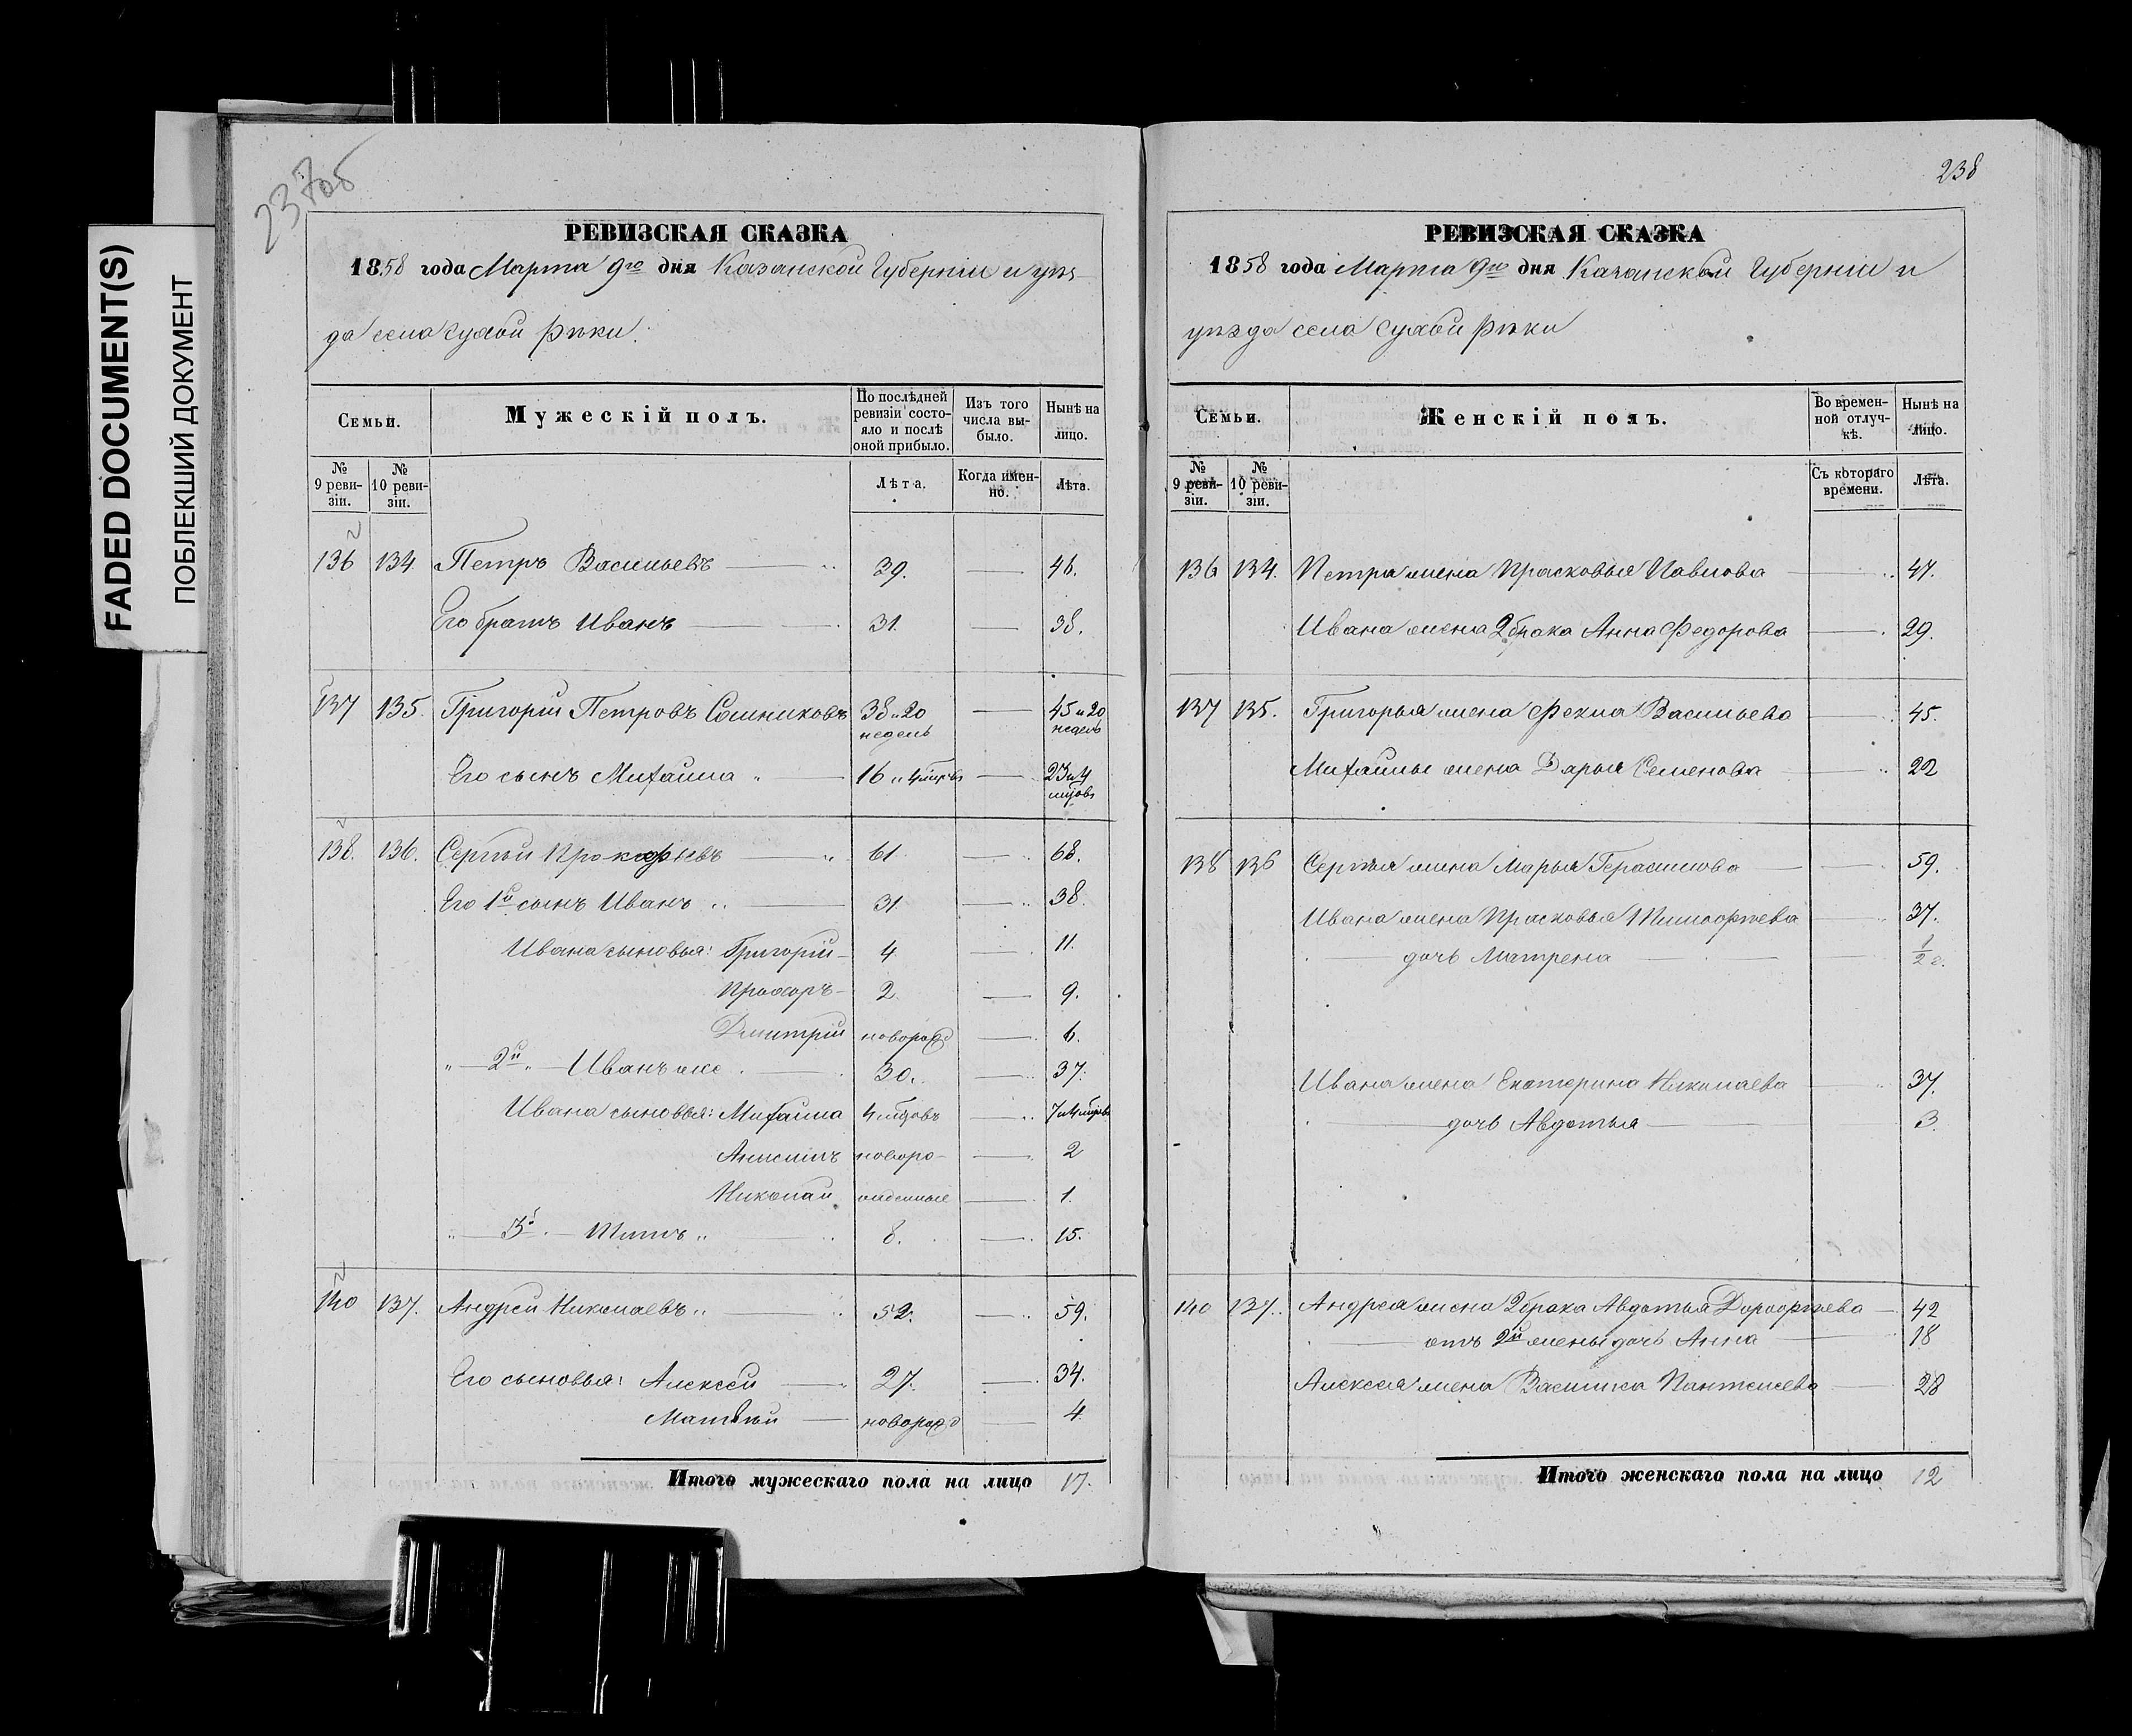 FADED DOCUMENT(S)
ПОБЛЕКШИЙ ДОКУМЕНТ
237об
РЕВИЗСКАЯ СКАЗКА
1858 года Марта 9го дня Казанской Губернии и уѣз-
да села Сухой Рѣки.
Семьи. Мужескій полъ. По послѣдней ревизіи состояло и послѣ оной прибыло. Изъ того числа выбыло. Нынѣ на лицо.
№ 9 ревизіи. № 10 ревизіи. Лѣта. Когда именно. Лѣта.
136 134 Петръ Васильевъ 39. 46.
Его братъ Иванъ 31. 38.
137 135. Григорій Петровъ Сошниковъ 38 и 20 недель 45 и 20 недель
Его сынъ Михайла 16 и 4 мцовъ 23 и 4 мцовъ
138. 136. Сергѣй Прокофьевъ 61 68.
Его 1й сынъ Иванъ 31 38.
Ивана сыновья: Григорій 4 11.
Прохоръ 2. 9.
Дмитрійноворожд 6.
2й Иванъ же 30. 37.
Ивана сыновья: Михайла 4 мцовъ 7 и 4 мцовъ
Анисимъ новоро- 2
Николай жденные 1.
3й Титъ 8. 15.
140 137. Андрей Николаевъ 52. 59.
Его сыновья: Алексей 27. 34.
Матвѣй новорожд 4
Итого мужескаго пола на лицо 17.
238
РЕВИЗСКАЯ СКАЗКА
1858 года Марта 9го дня Казанской Губерніи и
уѣзда села Сухой Рѣки
Семьи. Женскій полъ. Во временной отлучкѣ. Нынѣ на лицо.
№ 9 ревизіи. № 10 ревизіи. Съ котораго времени. Лѣта.
136 134. Петра жена Прасковья Павлова 47.
Ивана жена 2 брака Анна Федорова 29.
137 135. Григорья жена Фекла Васильева 45.
Михайлы жена Дарья Семенова 22
138 136 Сергѣя жена Марья Герасимова 59.
Ивана жена Прасковья Тимофѣева 37.
дочь Матрена 1/2 г.
Ивана жена Екатерина Николаева 37.
дочь Авдотья 3.
140 137. Андрея жена 2 брака Авдотья Дорофѣева 42
отъ 2й жены дочь Анна 18
Алексея жена Василиса Пантелеева 28
Итого женскаго пола на лицо 12